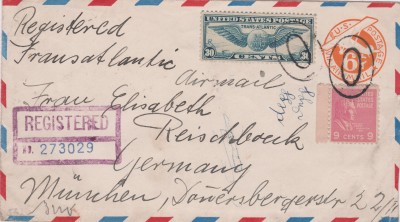 Registered
Transatlantic
Airmail
Frau Elisabeth
Reischboeck
Germany
München, Dönersbergerstr 22/II
UNITED STATES POSTAGE
TRANS-ATLANTIC
30 CENTS 30
U.S. POSTAGE
6
9 CENTS 9
REGISTERED
273029